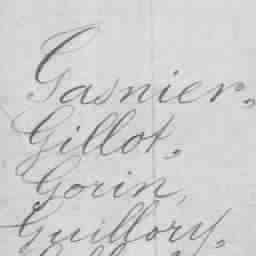 Gasnier.
Gillot.
Gorin,
Guillory.